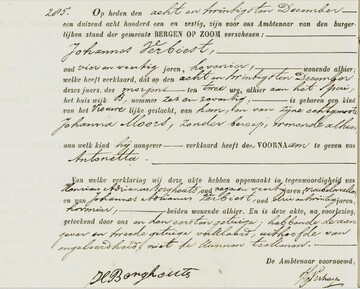 285. Op heden den acht en twintigsten December
een duizend acht honderd een en zestig, zijn voor ons Ambtenaar van den burger
lijken stand der gemeente BERGEN OP ZOOM verschenen:
Johannes Verbeest,
oud vier en jaren, hovenier, wonende alhier,
welke heeft verklaard, dat op den acht en twintigsten December
dezes jaars, des morgens ten twee ure, alhier aan het
het huis wijk B, nummer zes en is geboren een kind
van het Vrouwelijke geslacht, van hem, en van zijne echtgenoote
Johanna Moors, zonder beroep, wonende alhier
aan welk kind hij aangever verklaard heeft de VOORNAAM te geven van
Antonetta
Van welke verklaring wij deze akte hebben opgemaakt in tegenwoordigheid van
Adrianus Borghouts, oud jaren,
en van Johannes Adrianus Verbeest, oud jaren,
hovenier, beiden wonende alhier. En is deze akte, na voorlezing,
geteekend door ons en den eersten getuige, hebbende de aan-
gever en tweede getuige verklaard, uithoofde van
ongeleerdheid, niet te kunnen teekenen.
De Ambtenaar voornoemd,
Borghouts